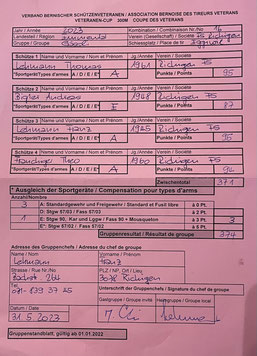 VERBAND BERNISCHER SCHÜTZENVETERANEN / ASSOCIATION BERNOISE DES TIREURS VETERANS
VETERANEN-CUP 300M COUPE DES VETERANS
Jahr / Année 2023 Kombination / Combinaison Nr./No
Landesteil / Région Emmental Verein (Gesellschaft) / Société FS Richigen
Gruppe / Groupe Schiessplatz / Place de tir
Schütze 1 Name und Vorname / Nom et Prénom Jg./Année Verein / Société
Lehmann Thomas 1961 Richigen FS
*Sportgerät/Types d'armes A / D / E / E* A Punkte / Points 95
Schütze 2 Name und Vorname / Nom et Prénom Jg./Année Verein / Société
Bigler Andreas 1948 Richigen FS
*Sportgerät/Types d'armes A / D / E / E* E Punkte / Points 87
Schütze 3 Name und Vorname / Nom et Prénom Jg./Année Verein / Société
Lehmann Franz 1945 Richigen FS
*Sportgerät/Types d'armes A / D / E / E* A Punkte / Points 95
Schütze 4 Name und Vorname / Nom et Prénom Jg./Année Verein / Société
Theo 1960 Richigen FS
*Sportgerät/Types d'armes A / D / E / E* A Punkte / Points 94
Zwischentotal 371
* Ausgleich der Sportgeräte / Compensation pour types d'arms
Anzahl/Nombre
3 A: Standardgewehr und Freigewehr / Standard et Fusil libre à 0 Pt.
D: Stgw 57/03 / Fass 57/03
1 E: Stgw 90, Kar und Lgw / Fass 90 + Mousqueton à 3 Pt. 3
E*: Stgw 57/02 / Fass 57/02
Gruppenresultat / Résultat de groupe 374
Adresse des Gruppenchefs / Adresse du chef de groupe
Name / Nom Vorname / Prénom
Lehmann Franz
Strasse / Rue Nr./No PLZ / NP, Ort / Lieu
3078 Richigen
Tel. Unterschrift der Gruppenchefs / Signature du chef de groupe
Datum / Date Gastgruppe / Groupe invité Heimgruppe / Groupe local
31.5.2023
Gruppenstandblatt, gültig ab 01.01.2022